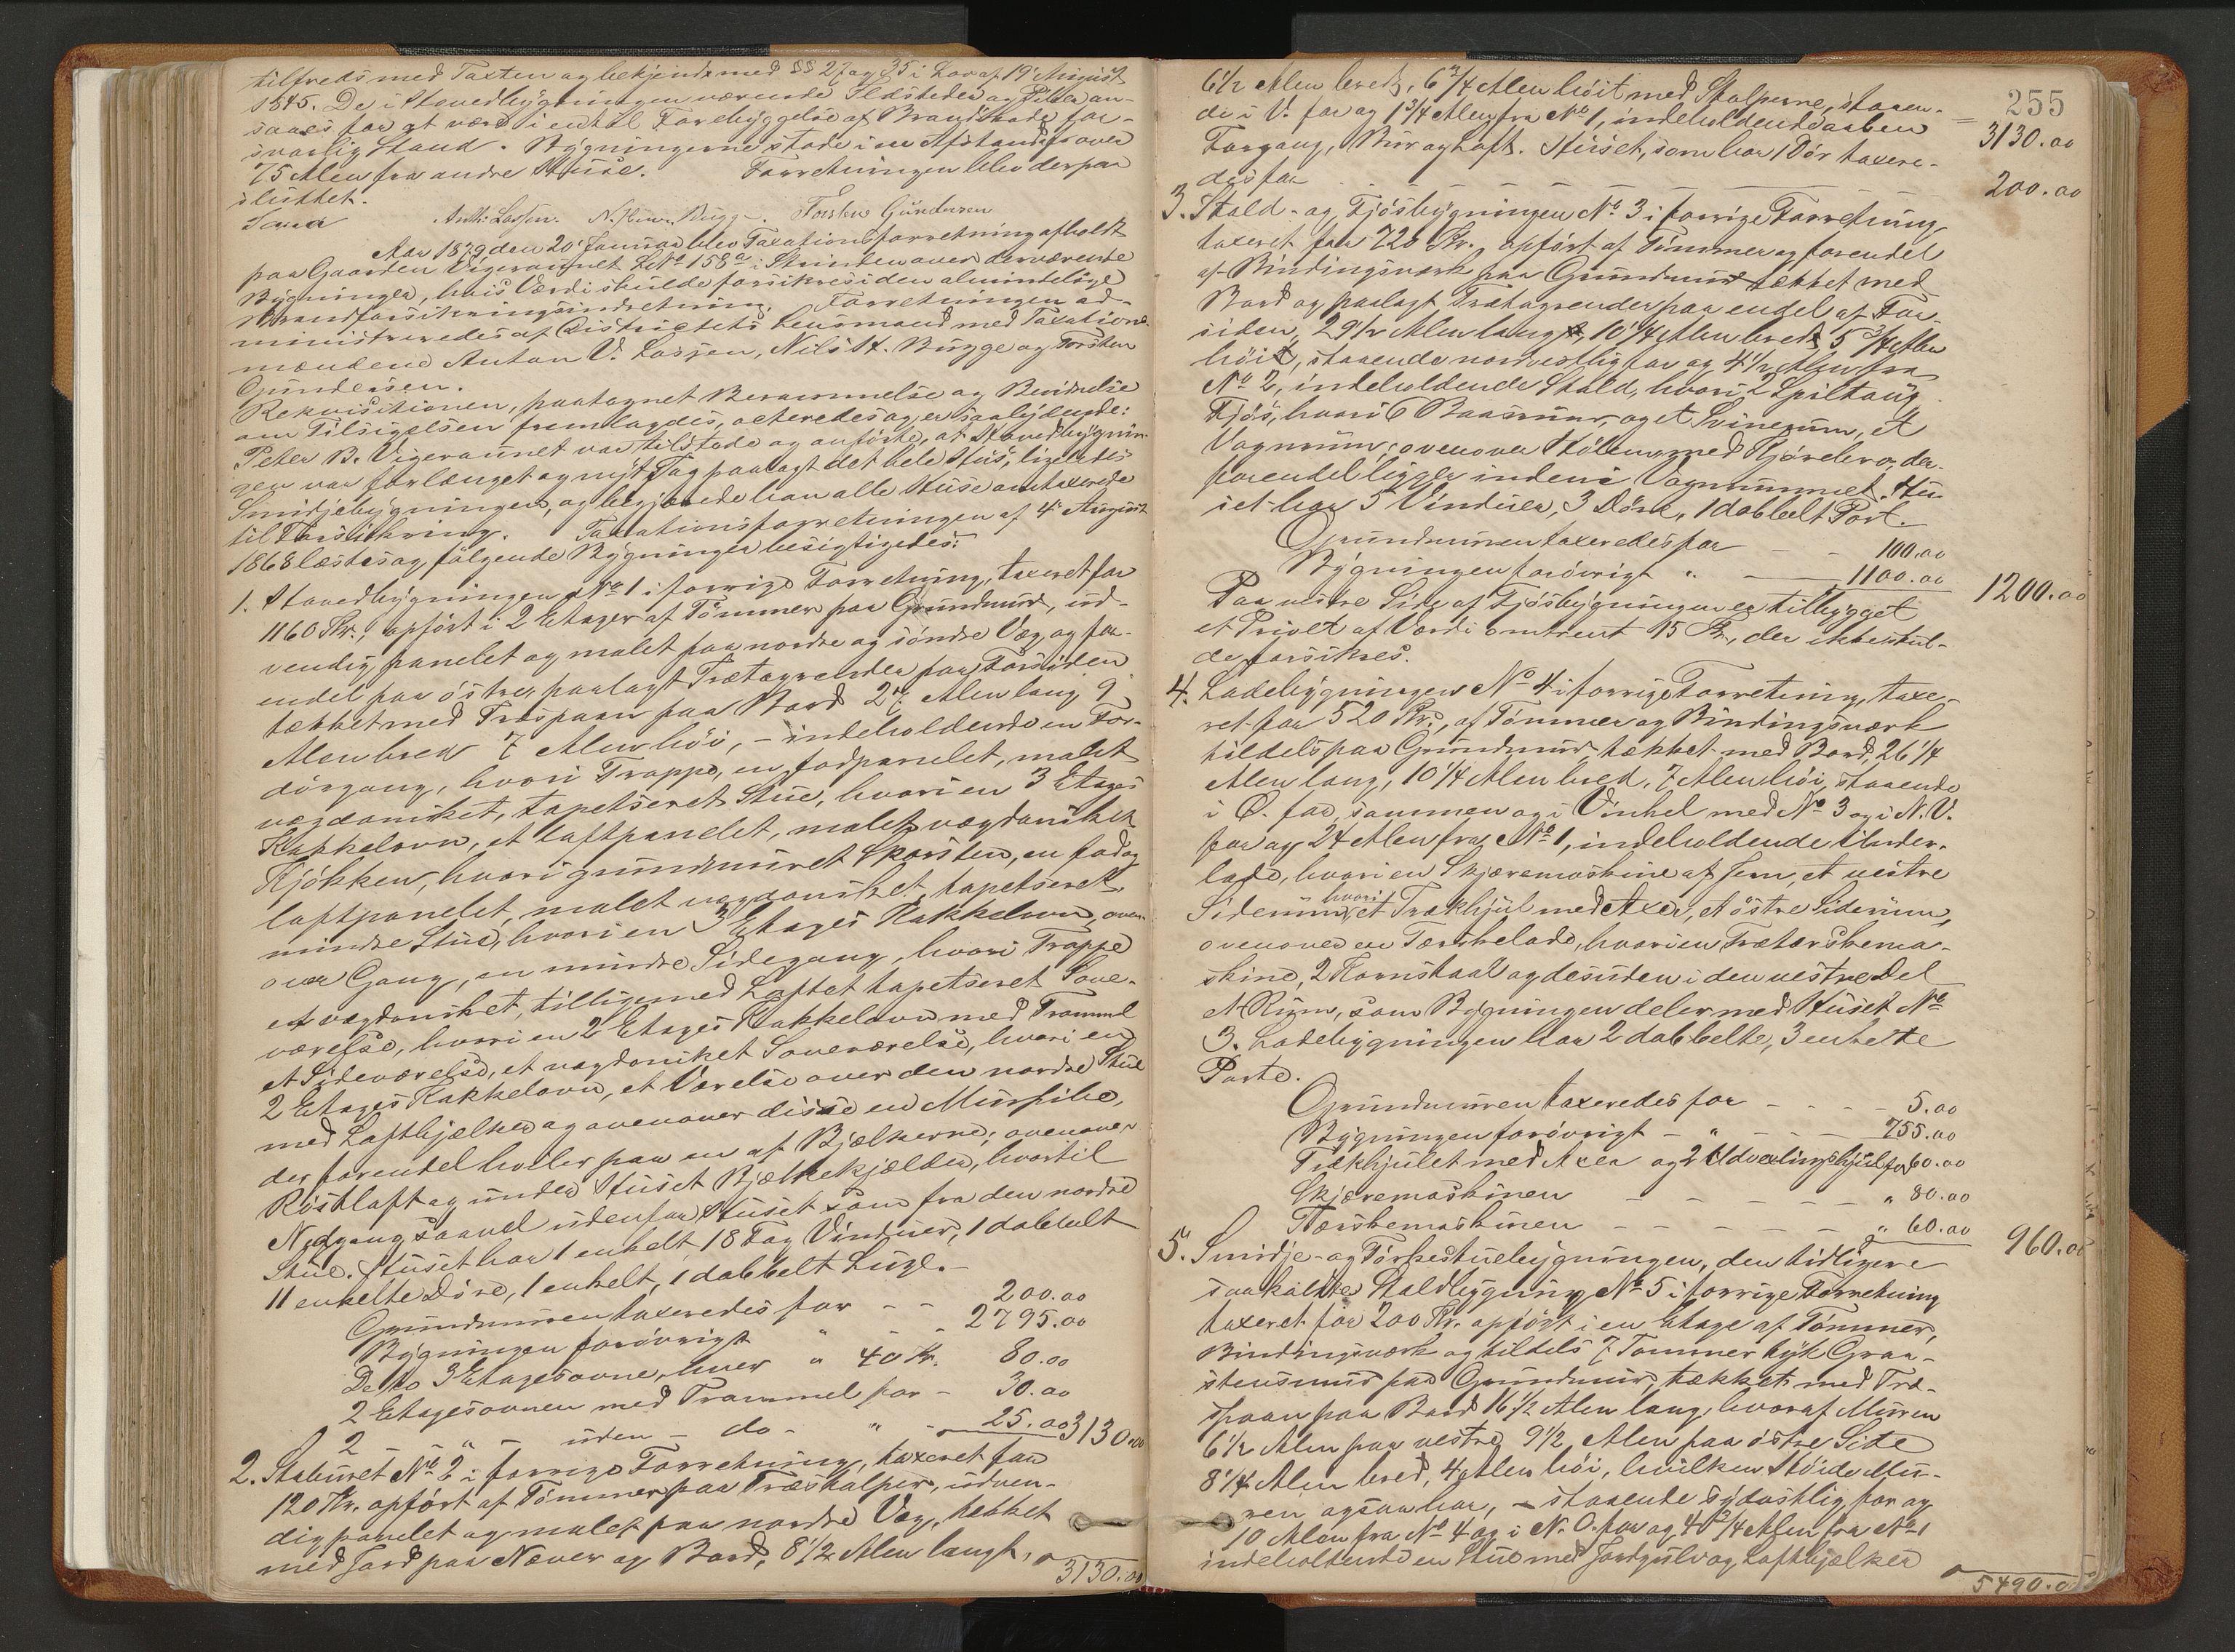 tilfreds med Taxten og bekjendt med §§ 27 og 35 i Lov af 19 August
1845. De i Hovedbygningen værende Ildsteder og Piber an-
saaes for at være i en til Forebyggelse af Brandskade for-
svarlig Stand. Bygningerne stode i en Afstand af over
75 Alen fra andre Huse. Forretningen blev derpaa
sluttet.
Anth. Lassen. N. Hans. Bugge. Torsten Gundersen
Aar 1879 den 20 Januar blev Taxationsforretning afholdt
paa Gaarden Vigeraunet LNo 158a i Strinden over derværende
Bygninger, hvis Værdi skulde forsikres i den almindelige
Brandforsikringsindretning. Forretningen ad-
ministreredes af Distrigtets Lensmand med Taxations-
mændene Anton V. Lassen, Nils H. Bugge og Torsten
Gundersen.
Rekvisitionen, paategnet Berammelse og Bevidnelse
om Tilsigelsen fremlagdes, acteredes og er saalydende:
Peter B. Vigeraunet var tilstede og anførte, at Hovedbygnin-
gen var forlænget og nyt Tag paalagt det hele Hus, ligeledes
Smidjebygningen, og begjærede han alle Huse omtaxerede
til Forsikring. Taxationsforretningen af 4 August
1868 læstes og følgende Bygninger besigtigedes:
1. Hovedbygningen No 1 i forrige Forretning, taxeret for
1160 Kr., opført i 2 Etager af Tømmer paa Grundmur, ud-
vendig panelet og malet paa nordre og søndre Væg og for-
endel paa østre, paalagt Trætagrender paa Forsiden
tækket med Træspaan paa Bord 27 Alen lang 9
Alen bred 7 Alen høi, - indeholdende en For-
dørgang, hvori Trappe, en fodpanelet, malet
vægdonsket, tapetseret Stue, hvori en 3 Etages
Kakkelovn, et loftpanelet, malet vægdonsket
Kjøkken, hvori grundmuret Skorsten, en fod og
loftpanelet, malet vægdonsket, tapetseret
mindre Stue, hvori en 3 Etages Kakkelovn, oven-
over Gang, en mindre Sidegang, hvori Trappe
et vægdonsket, tilligemed Loftet tapetseret Sove-
værelse, hvori en 2 Etages Kakkelovn med Trommel
et Sideværelse, et vægdonsket Soveværelse, hvori en
2 Etages Kakkelovn, et Værelse over den nordre Stue
med Loftbjælker og ovenover disse en Murpibe,
der forendel hviler paa en af Bjælkerne; ovenover
Røstloft og under Huset Bjælkekjælder, hvortil
Nedgang saavel udenfor Huset som fra den nordre
Stue. Huset har 1 enkelt, 18 Fag Vinduer, 1 dobbelt
11 enkelte Døre, 1 enkelt, 1 dobbelt Luge. -
Grundmuren taxeredes for - - 200.00
Bygningen forøvrigt " - - 2795.00
De to 3 Etagesovne, hver " 40 Kr. 80.00
2 Etagesovnen med Trommel for - 30.00
2 " - uden - do - " - 25.00 3130.00
2. Staburet No 2 i forrige Forretning, taxeret for
120 Kr. opført af Tømmer paa Træstolper, udven-
dig panelet og malet paa nordre Væg, tækket
med Jord paa Næver og Bord, 8 1/2 Alen langt,
3130.00
255
6 1/2 Alen bredt, 6 3/4 Alen høit med Stolperne, staaen-
de i V. for og 1 3/4 Alen fra No 1, indeholdende aaben
3130.00
Forgang, Bur og Loft. Huset, som har 1 Dør taxere-
des for - - - 200.00
3. Stald- og Fjøsbygningen No 3 i forrige Forretning,
taxeret for 720 Kr., opført af Tømmer og forendel
af Bindingsværk paa Grundmur tækket med
Bord og paalagt Trætagrender paa endel af For-
siden, 29 1/2 Alen lang, 10 1/4 Alen bred, 5 3/4 Alen
høit, staaende nordvestlig for og 4 1/2 Alen fra
No 2, indeholdende Stald, hvori 2 Spiltoug
Fjøs, hvori 6 Baasrum, og et Svinerum, et
Vognrum; ovenover Stølen med Kjørebro, der
forendel ligger inden i Vognrummet. Hu-
set har 5 Vinduer, 3 Døre, 1 dobbelt Port.
Grundmuren taxeredes for - - 100.00
Bygningen forøvrigt " - 1100.00 1200.00
Paa vestre Side af Fjøsbygningen er tilbygget
et Privet af Værdi omtrent 15 Kr., der ikke skul-
de forsikres.
4. Ladebygningen No 4 i forrige Forretning, taxe-
ret for 520 Kr., af Tømmer og Bindingsværk
tildels paa Grundmur, tækket med Bord, 26 1/4
Alen lang, 10 1/4 Alen bred, 7 Alen høi, staaende
i Ø. for, sammen og i Vinkel med No 3 og i N.V.
for og 24 Alen fra No 1, indeholdende Under-
lade, hvori en Skjæremaskine af Jern, et vestre
Siderum, hvori et Trækhjul med Axer, et østre Siderum,
ovenover en Tærskelade, hvori en Trætærskema-
skine, 2 Kornstaal og desuden i den vestre Del
et Rum, som Bygningen deler med Huset No
3. Ladebygningen har 2 dobbelte, 3 enkelte
Porte.
Grundmuren taxeredes for - - - - 5.00
Bygningen forøvrigt - " - - - 755.00
Trækhjulet med Axer og 2 Udvexlingshjul for 60.00
Skjæremaskinen - - - - - " 80.00
Tærskemaskinen - - - - - " 60.00 960.00
5. Smidje- og Tørkestuebygningen, den tidligere
saakaldte Staldbygning No 5 i forrige Forretning
taxeret for 200 Kr. opført i en Etage af Tømmer,
Bindingsværk og tildels 7 Tommer tyk Graa-
stensmur paa Grundmur, tækket med Træ-
spaan paa Bord 16 1/2 Alen lang, hvoraf Muren
6 1/2 Alen paa vestre, 9 1/2 Alen paa østre Side
8 1/4 Alen bred, 4 Alen høi, hvilken Høide Mu-
ren ogsaa har, - staaende sydostlig for og
10 Alen fra No 4 og i N.O. for og 40 3/4 Alen fra No 1
indeholdende en Stue med Jordgulv og Loftbjælker
5490.00